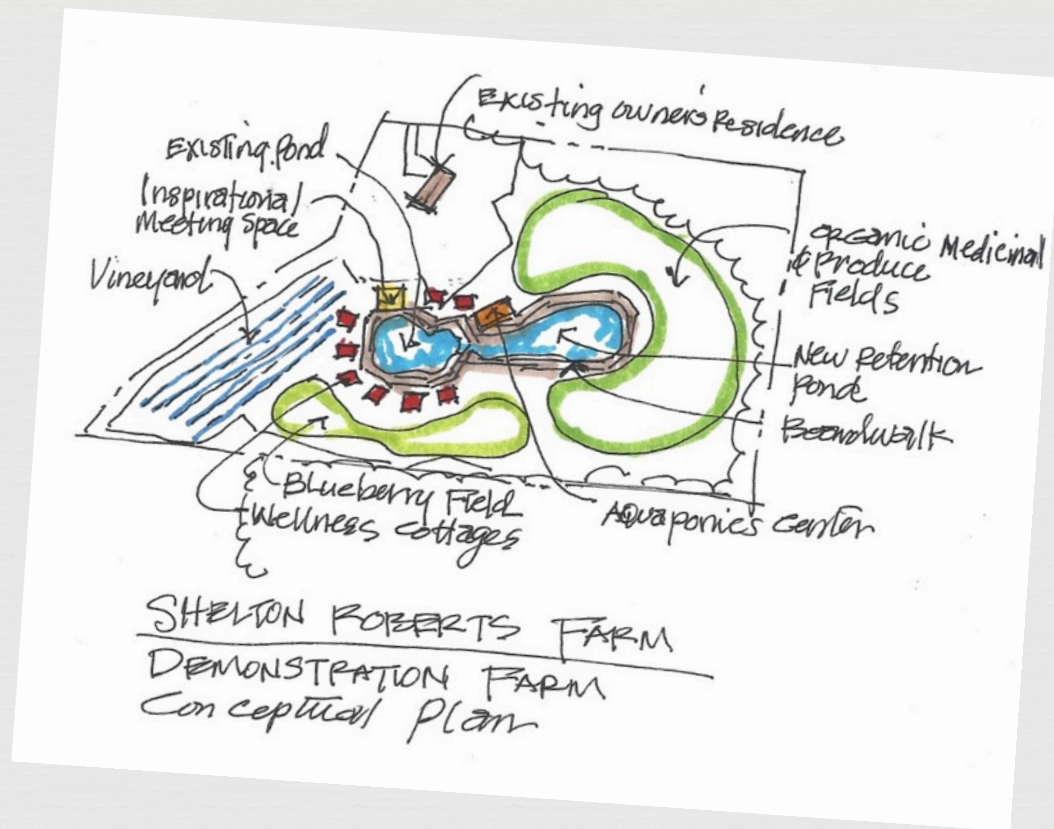 Existing owner's Residence
Existing Pond
Inspirational
Meeting Space
Vineyard
Organic Medicinal
& Produce
Fields
New Retention
Pond
Boardwalk
Blueberry Field
Wellness Cottages
Aquaponics Center
SHELTON ROBERTS FARM
DEMONSTRATION FARM
Conceptual Plan